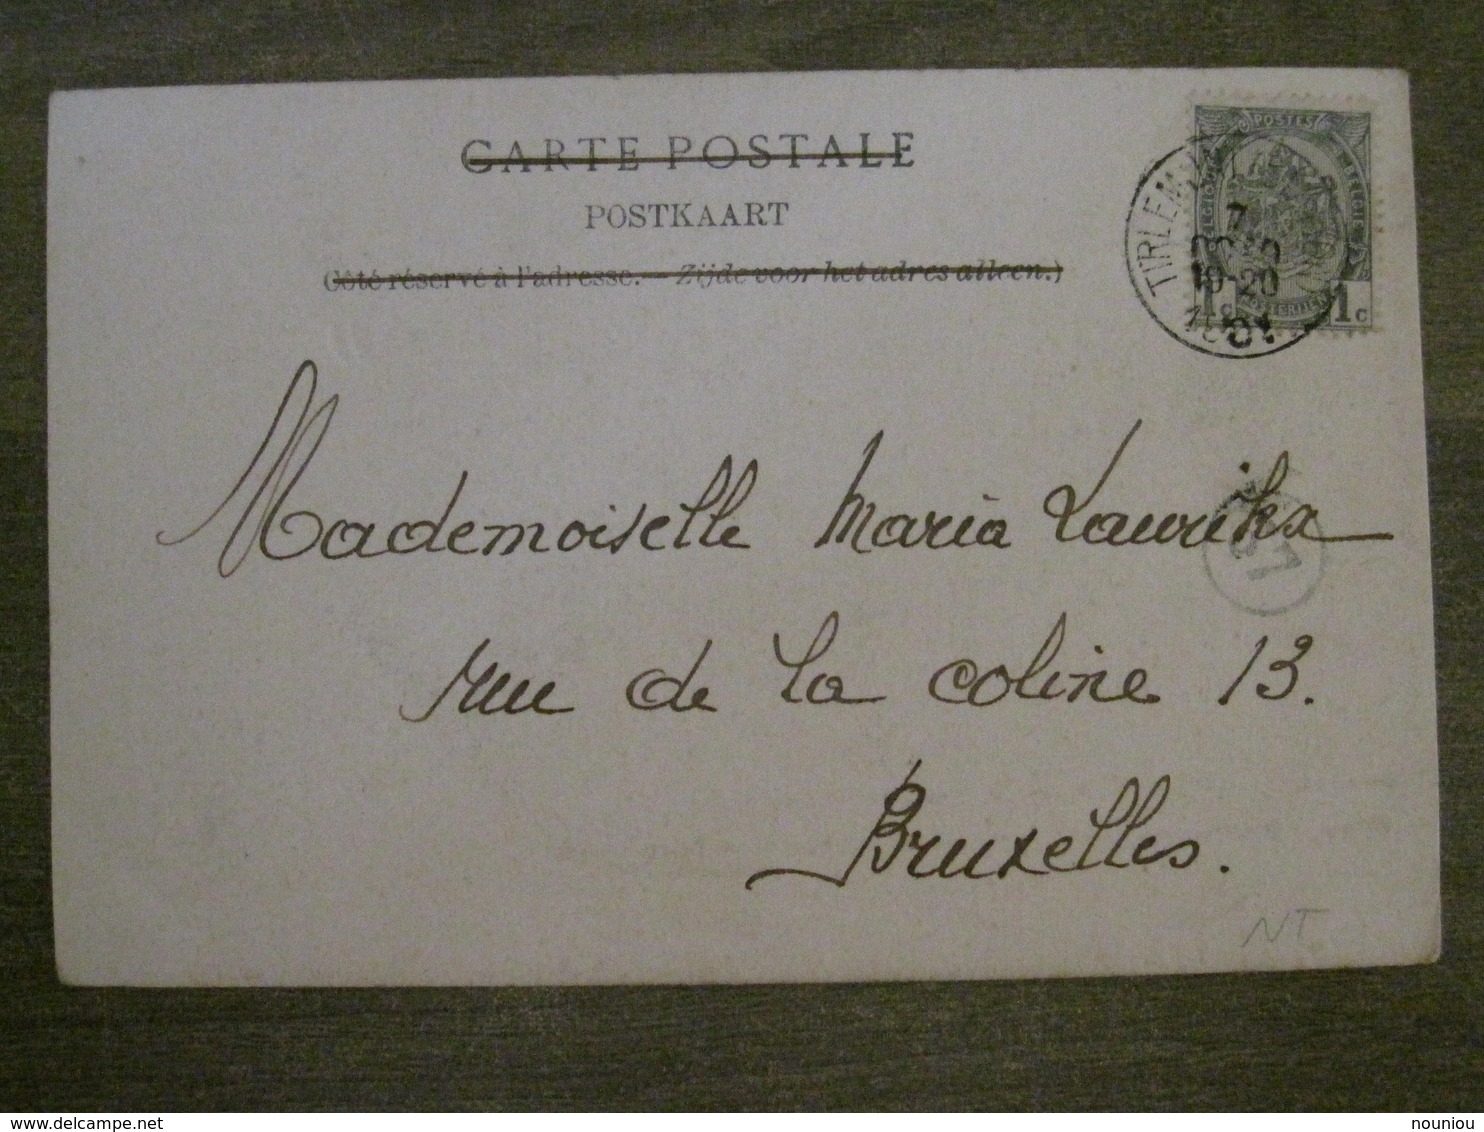 CARTE POSTALE
POSTKAART
(Côté réservé à l'adresse. — Zijde voor het adres alleen.)
POSTES
BELGIQUE BELGIË
1 c 1 c
TIRLEM
7
19-20
Mademoiselle Maria Laurikx
rue de la coline 13.
Bruxelles.
NT
nouniou